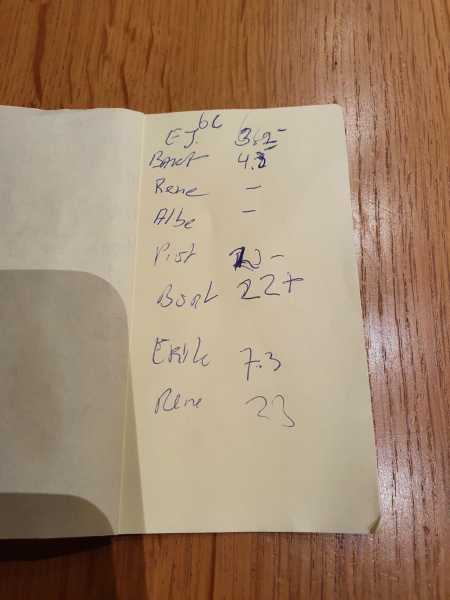 EJ.
Bart 4.3
Rene -
Albe -
Piet -
Bart 22+
Erik 7.3
Rene 23